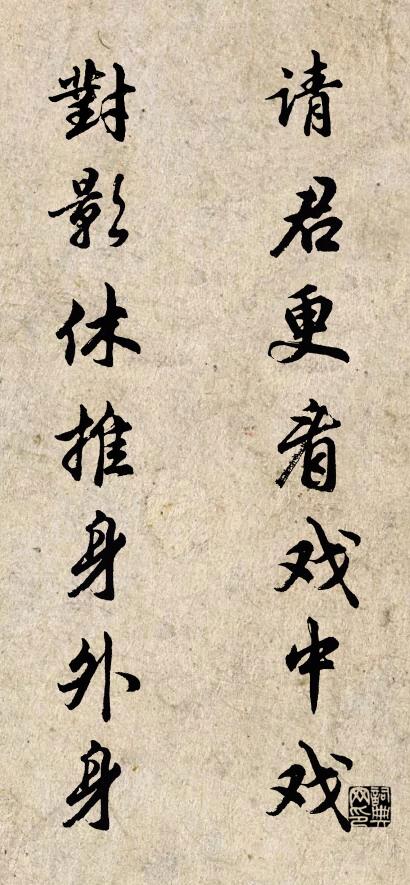 请君更看戏中戏
對影休推身外身
詞典网印